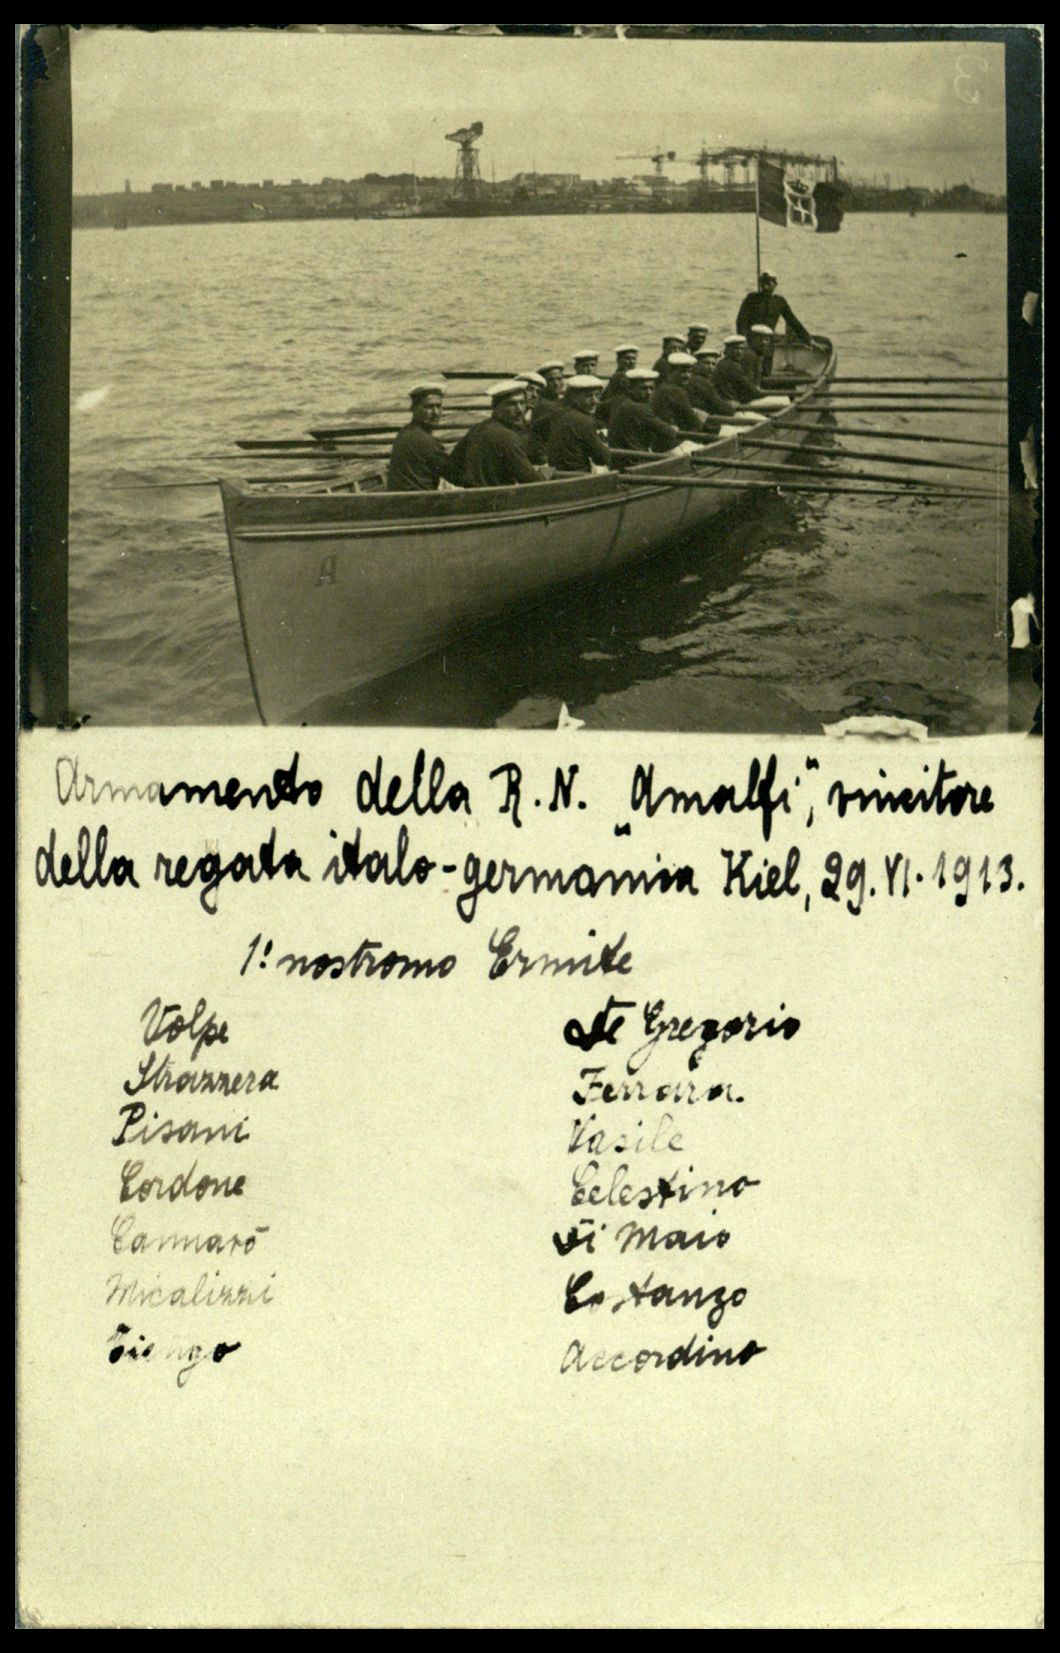 A
Armamento della R.N. „Amalfi", vincitore
della regata italo-germanica Kiel, 29.VI.1913.
1º nostromo Ermite
Volpe
Strazzera
Pisani
Cordone
Cannarò
Micalizzi
De Gregorio
Ferrara.
Vasile
Celestino
Di Maio
Costanzo
Accordino